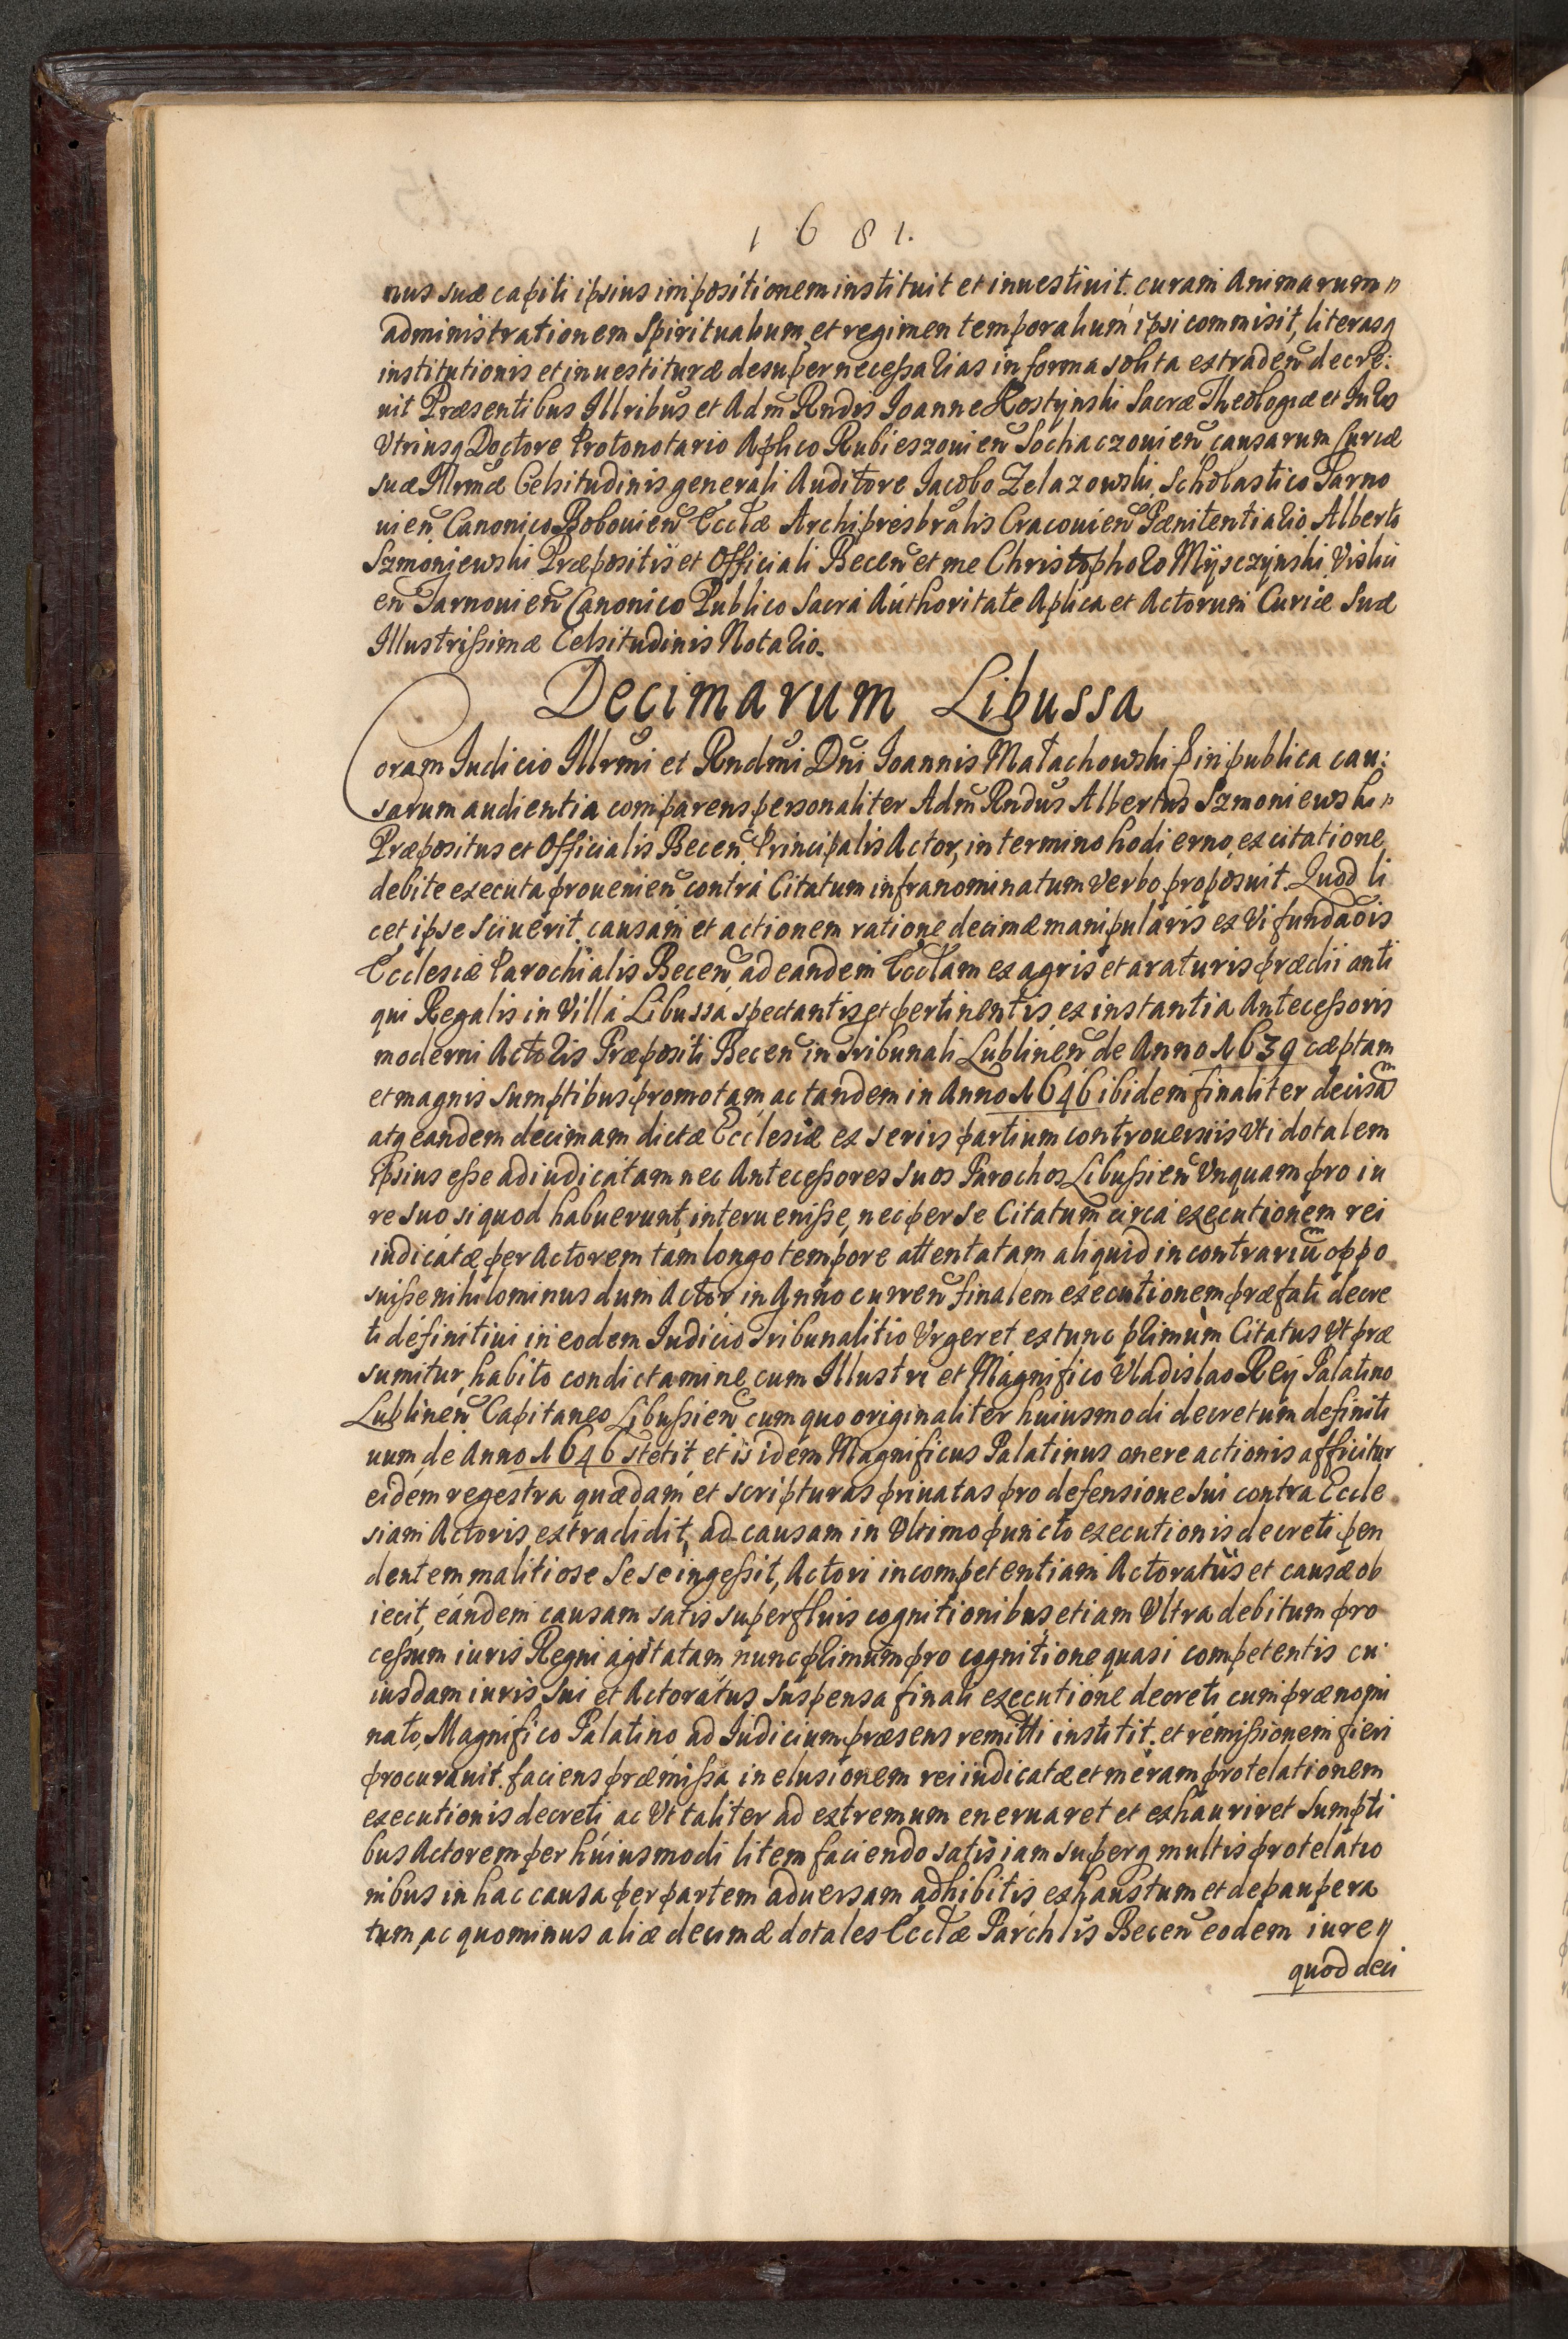 1681.
nus suæ capiti ipsius impositionem instituit et inuestiuit. curam Animarum
administrationem Spiritualium et regimen temporalium ipsi commisit, literasq
institutionis et inuestituræ desuper necessarias in forma solita extraden̄ decre:
uit Præsentibus Illribus et Adm̄ Rndis Joanne Kostynski Sacræ Theologiæ et Juris
Vtriusq Doctore Protonotario Aplico Rubieszouien̄ Sochaczouien̄ causarum Curiæ
suæ Illrmæ Celsitudinis generali Auditore Jacobo Zelazowski, Scholastico Tarno
uien̄ Canonico Bobouien̄ Eccłæ Archipresbrālis Cracouien̄ Pænitentiario Alberto
Szmoniewski Præpositis et Officiali Becen̄ et me Christophoro Mysczynski Vislici
en̄ Tarnouien̄ Canonico Publico Sacra Authoritate Aplica et Actorum Curiæ Suæ
Illustrissimæ Celsitudinis Notario.
Decimarum Libussa
Coram Judicio Illrmi et Rndmi Dn̄i Joannis Małachowski P in publica cau:
sarum audientia comparens personaliter Adm̄ Rndus Albertus Szmoniewski
Præpositus et Officialis Becen̄ Principalis Actor, in termino hodierno, ex citatione
debite executa prouenien̄ contra Citatum infranominatum verbo proposuit. Quod li
cet ipse sciuerit causam et actionem ratione decimæ manipularis ex Vi fundaōis
Ecclesiæ Parochialis Becen̄ ad eandem Eccłam ex agris et araturis prædii anti
qui Regalis in Villa Libussa spectantis et pertinentis, ex instantia Antecessoris
moderni Actoris Præpositi Becen̄ in Tribunali Lublinen̄ de Anno 1639 cæptam
et magnis sumptibus promotam, ac tandem in Anno 1646 ibidem finaliter decisam
atq eandem decimam dictæ Ecclesiæ ex seriis partium controuersiis Vti dotalem
Ipsius esse adiudicatam nec Antecessores suos Parochos Libussien̄ Vnquam pro iu
re suo si quod habuerunt, interuenisse, nec per se Citatum circa executionem rei
iudicatæ per Actorem tam longo tempore attentatam aliquid in contrarium oppo
suisse nihilominus dum Actor in Anno curren̄ finalem executionem præfati decre
ti definitiui in eodem Judicio Tribunalitio Vrgeret ex tunc plimum Citatus Vt præ
sumitur, habito condictamine cum Illustri et Magnifico Vladislao Rey Palatino
Lublinen̄ Capitaneo Libussien̄ cum quo originaliter huiusmodi decretum definiti
uum, de Anno 1646 stetit, et is idem Magnificus Palatinus onere actionis afficitur
eidem regestra quædam et scripturas priuatas pro defensione sui contra Eccle
siam Actoris extradidit, ad causam in Vltimo puncto executionis decreti pen
dentem malitiose se se ingessit, Actori incompetentiam Actoratus et causæ ob
iecit, eandem causam satis superfluis cognitionibus etiam Vltra debitum pro
cessum iuris Regni agitatam, nunc plimum pro cognitione quasi competentis cu
iusdam iuris sui et Actoratus suspensa finali executione decreti cum prænomi
nato, Magnifico Palatino ad Judicium præsens remitti institit. et remissionem fieri
procurauit. faciens præmissa in elusionem rei iudicatæ et meram protelationem
executionis decreti ac Vt taliter ad extremum eneruaret et exhauriret sumpti
bus Actorem per huiusmodi litem faciendo satis iam superq multis protelatio
nibus in hac causa per partem aduersam adhibitis exhaustum et depaupera
tum, ac quominus aliæ decimæ dotales Eccłæ Parchlis Becen̄ eodem iure
quod deci